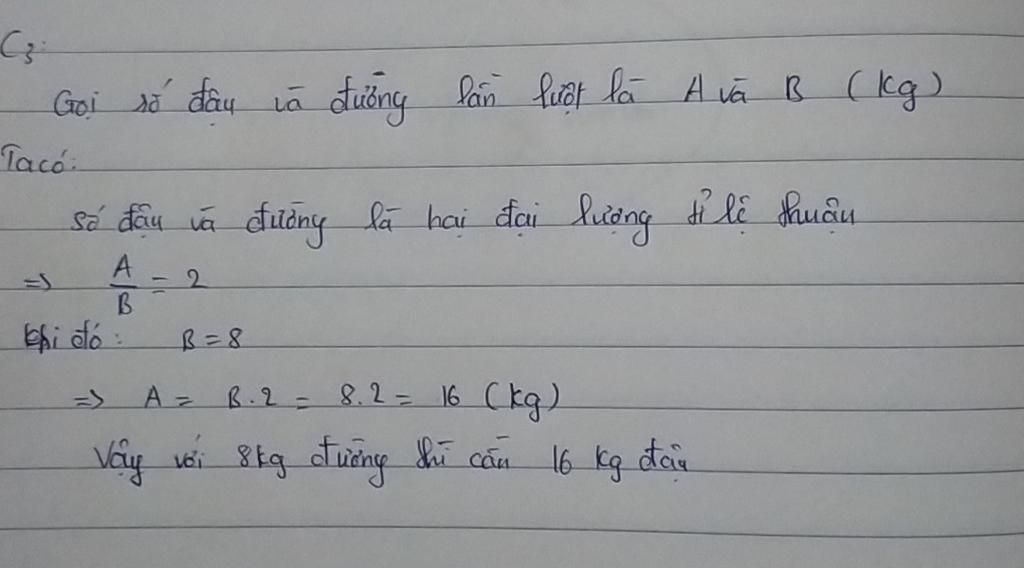 C3:
Gọi số đậu và đường lần lượt là A và B (kg)
Ta có:
Số đậu và đường là hai đại lượng tỉ lệ thuận
=> A/B = 2
Khi đó: B = 8
=> A = B.2 = 8.2 = 16 (kg)
Vậy với 8kg đường thì cần 16 kg đậu